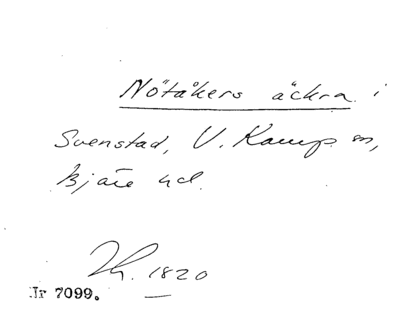 Nötåkers äckra i
Svenstad, V. Karup sn,
Bjäre hd.
Th. 1820
Nr 7099.